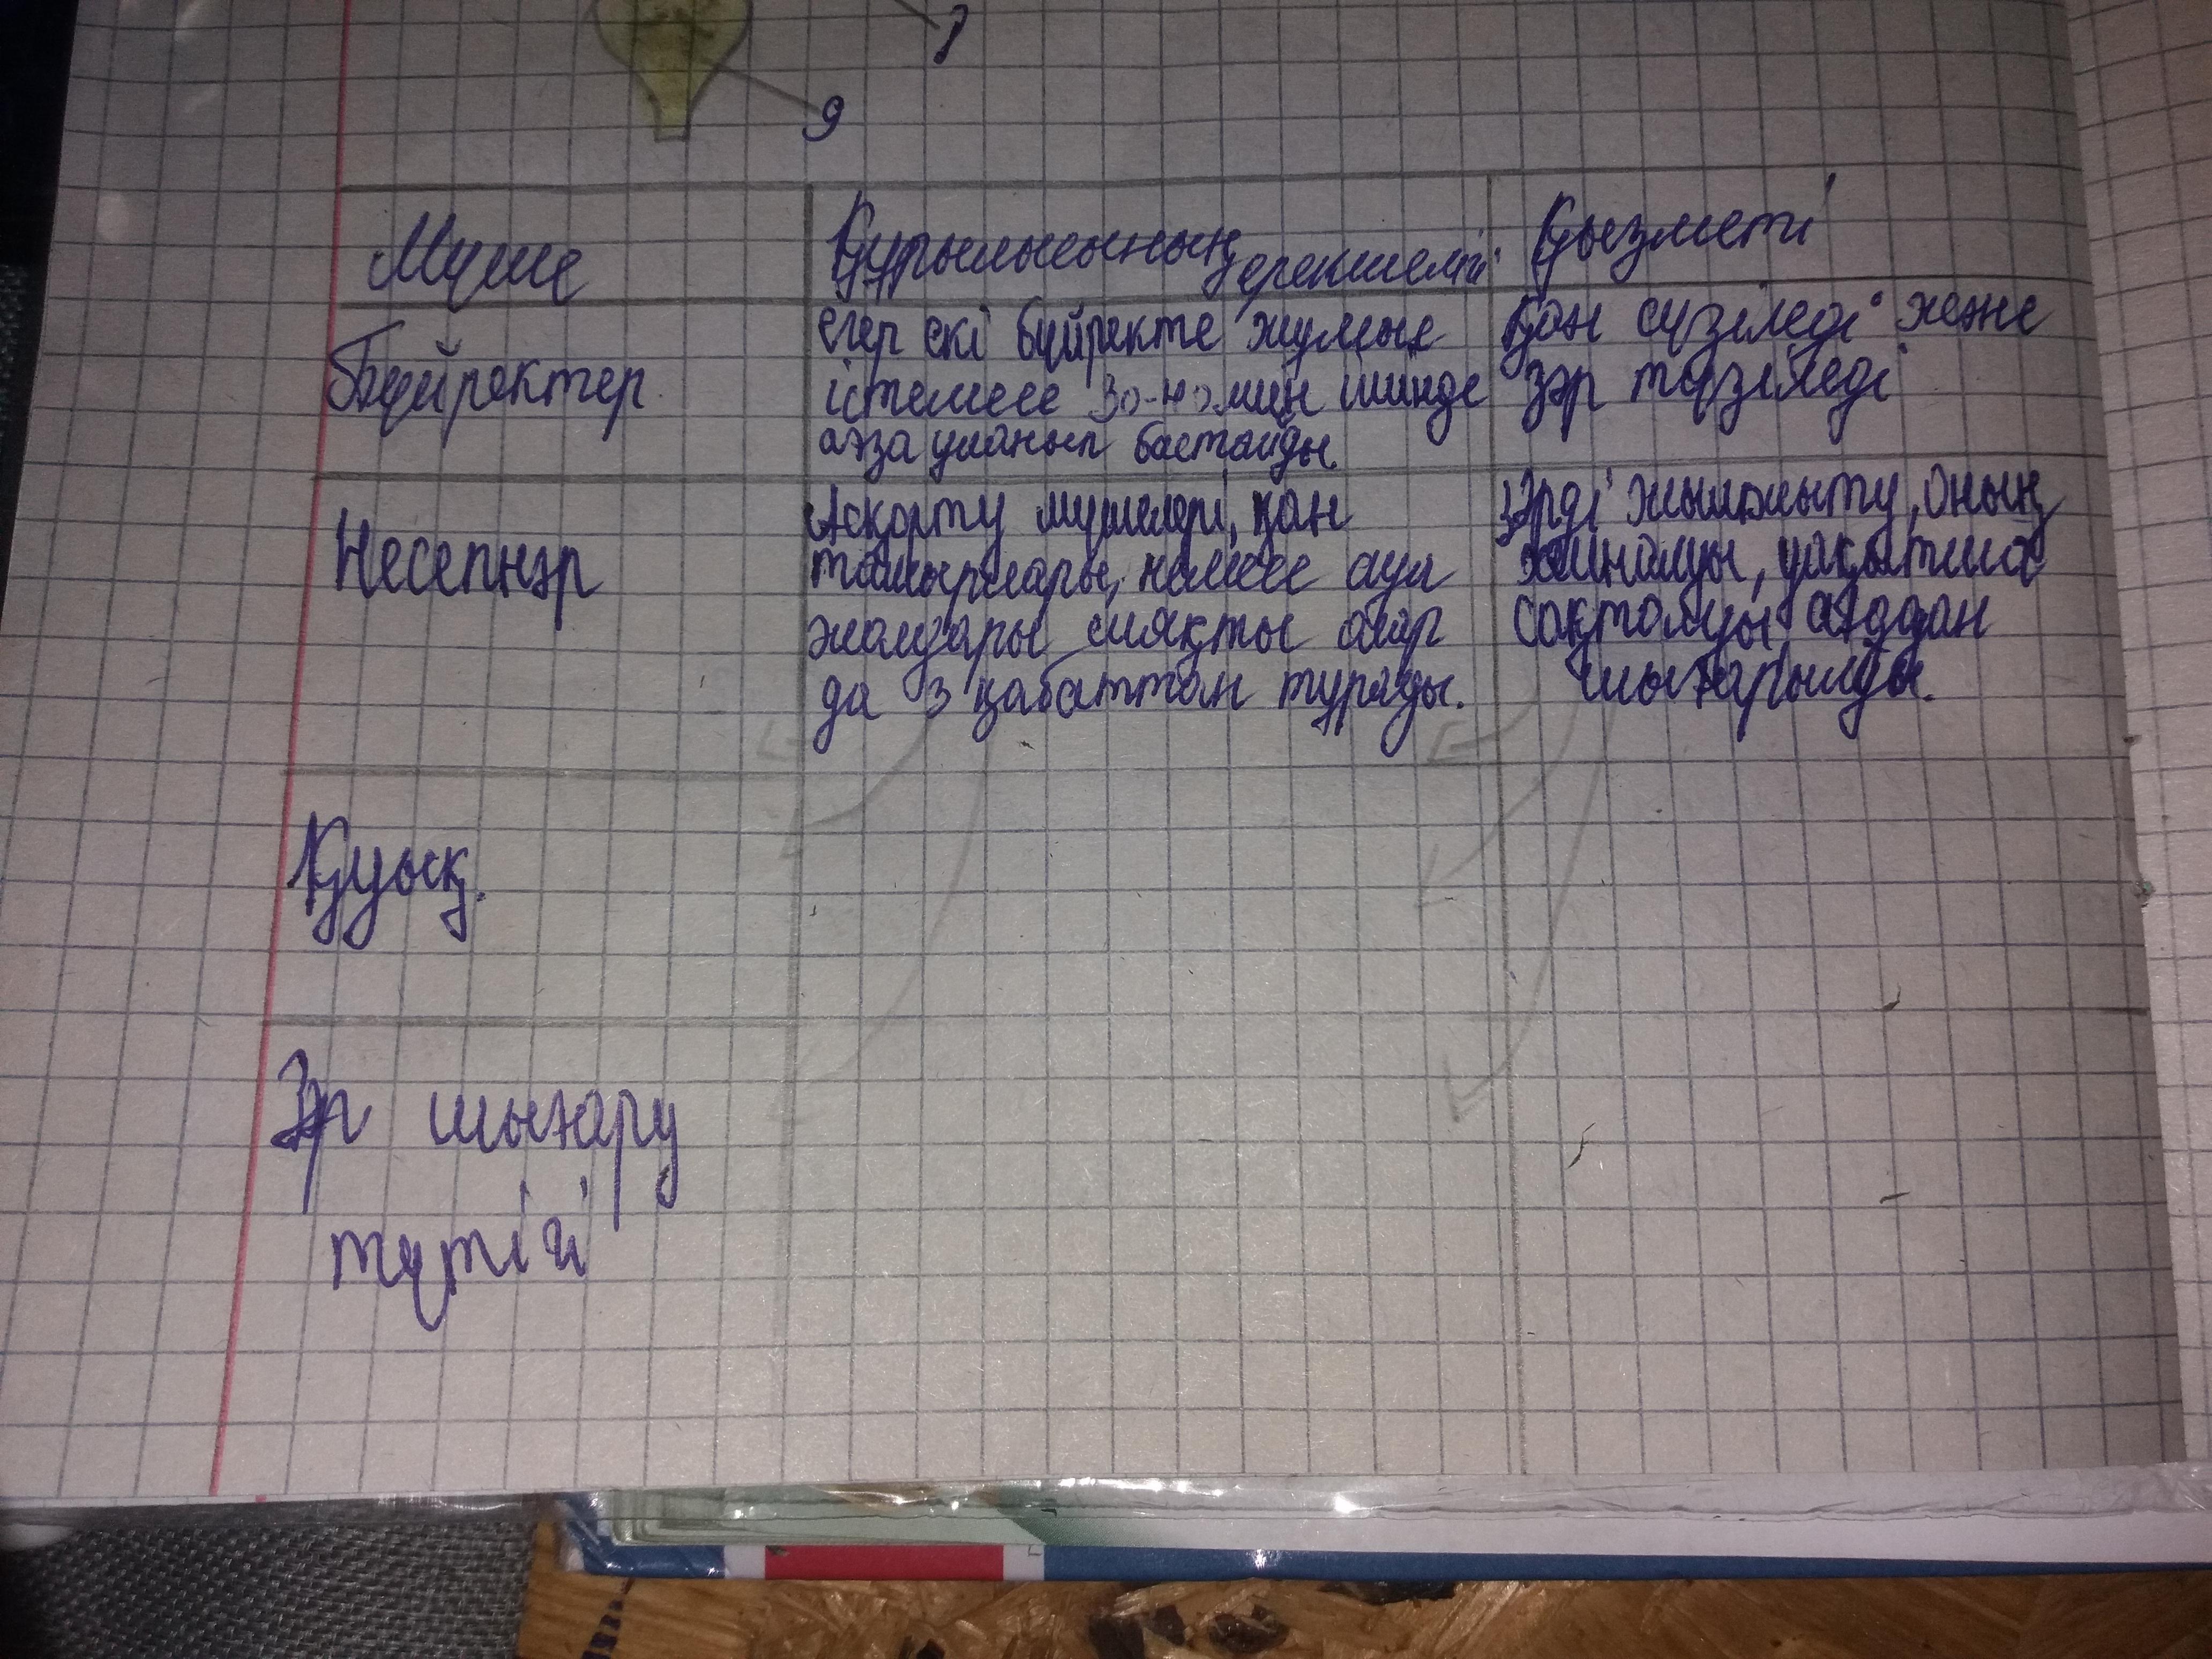 8
9
Мүше
Құрылысының ерекшелігі
Қызметі
Бүйректер
егер екі бүйректе жұмыс
істемесе 30-40 мин ішінде
ағза уланып бастайды.
Қан сүзіледі және
зәр түзіледі
Несепнәр
Асқорту мүшелері, қан
тамырлары, немесе ауа
жолдары сияқты олар
да 3 қабаттан тұрады.
Зәрді жылжыту, оның
жиналуы, уақытша
сақталуы ағзадан
шығарылуы.
Қуық.
Зәр шығару
түтігі